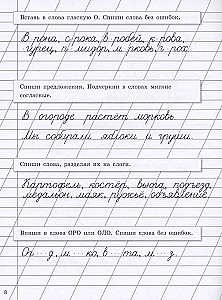 Вставь в слова гласную О. Спиши слова без ошибок.
В рона, с рока, в робей, к рова,
гурец, п мидор, м рковь, г рох.
Спиши предложения. Подчеркни в словах мягкие
согласные.
В огороде растёт морковь.
Мы собирали яблоки и груши.
Спиши слова, разделяя их на слоги.
Картофель, костёр, вьюга, подъезд,
медальон, маяк, ружьё, объявление.
Впиши в слова ОРО или ОЛО. Спиши слова без ошибок.
Ог...д, м...ко, в...та, м...з.
8